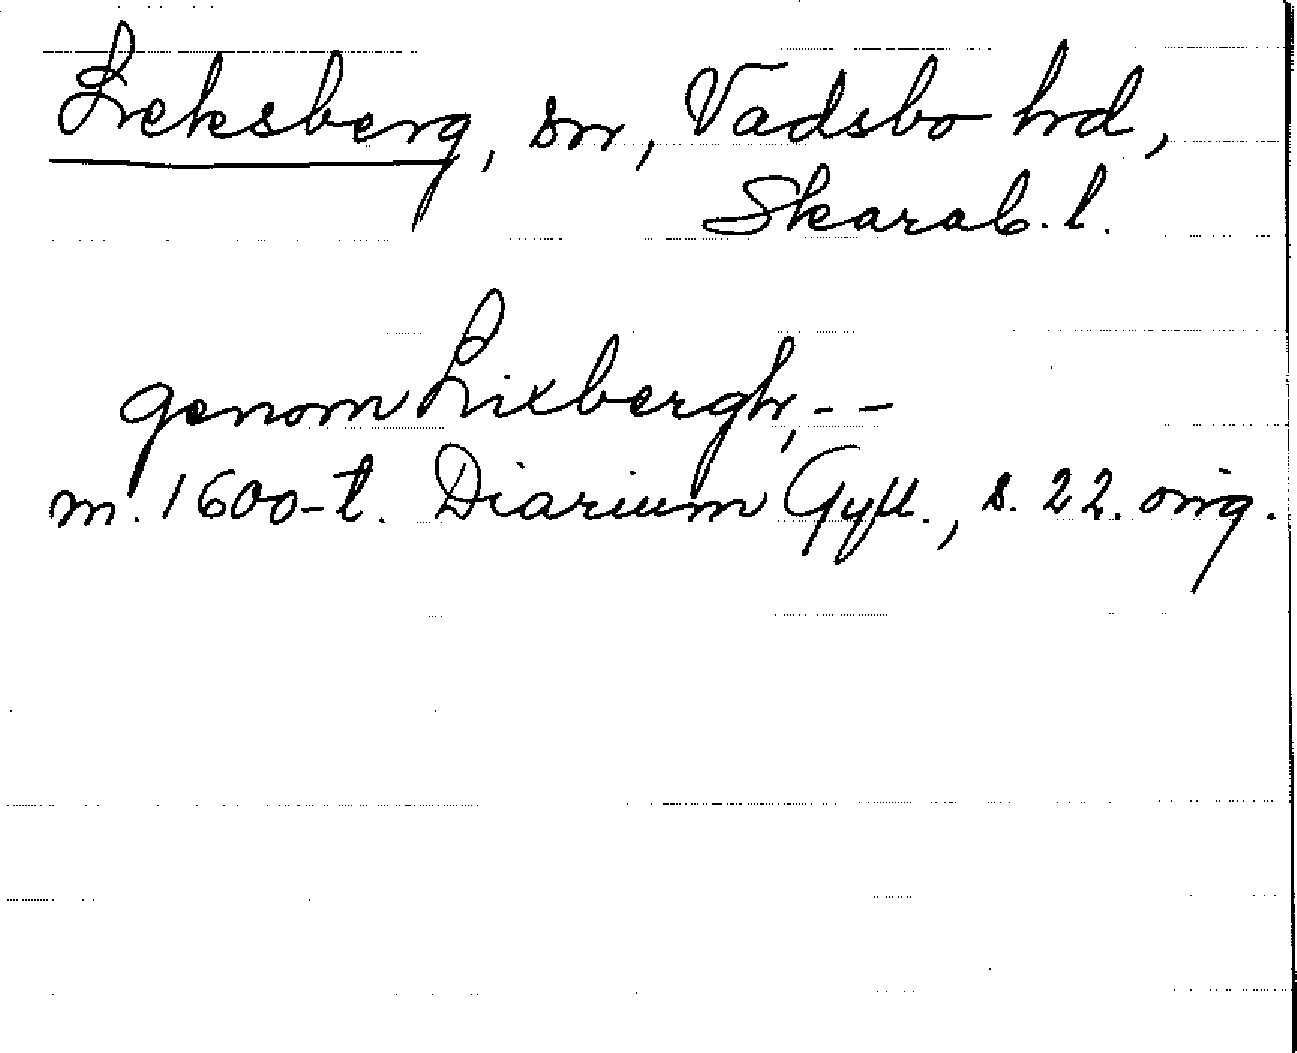 Leksberg, sn, Vadsbo hd,
Skarab. l.
genom Lixbergh, - -
m. 1600-t. Diarium Gyll., s. 22. orig.